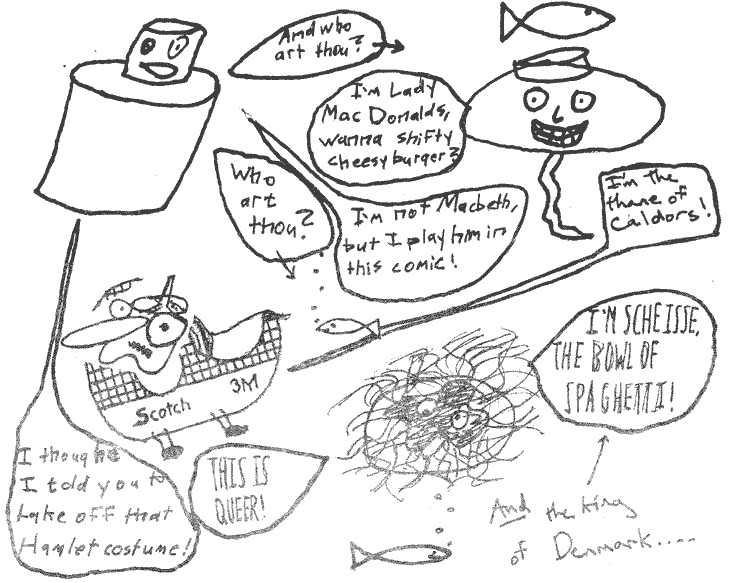 And who
art thou?
I'm Lady
MacDonalds,
wanna shifty
cheesyburger?
Who
art
thou?
I'm not Macbeth,
but I play him in
this comic!
I'm the
thane of
Caldors!
I'M SCHEISSE,
THE BOWL OF
SPAGHETTI!
Scotch 3M
I thought
I told you to
take off that
Hamlet costume!
THIS IS
QUEER!
And the King
of Denmark.....